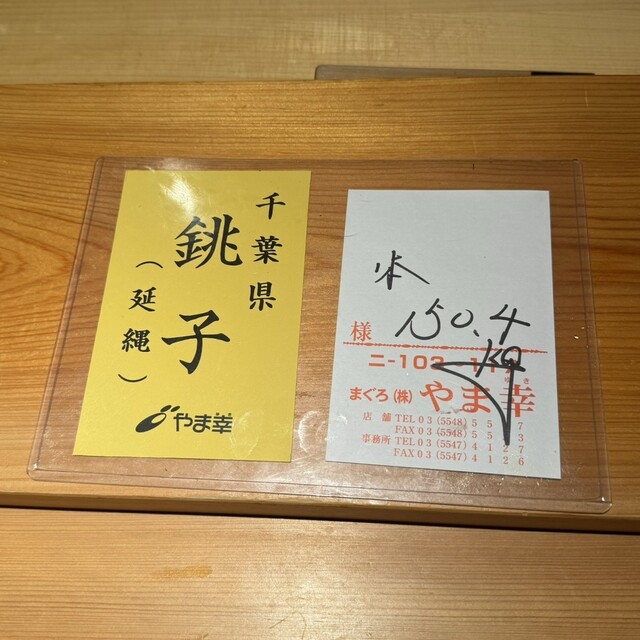 千葉県
銚子
（延縄）
やま幸
本
150.4
様
ニ-103
まぐろ（株）やま幸
店舗 TEL 03 (5548) 5 5 7
FAX 03 (5548) 5 3
事務所 TEL 03 (5547) 4 1 2 7
FAX 03 (5547) 4 1 2 6